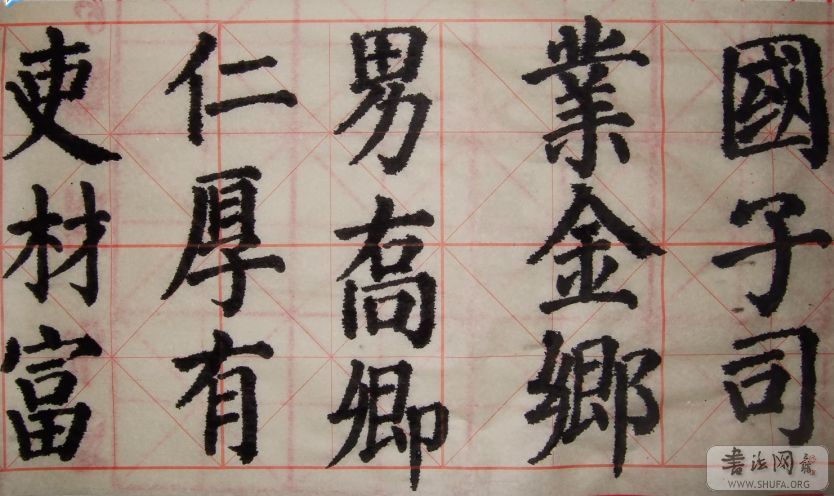 國子司
業金鄉
男喬卿
仁厚有
吏材富
書法网
WWW.SHUFA.ORG